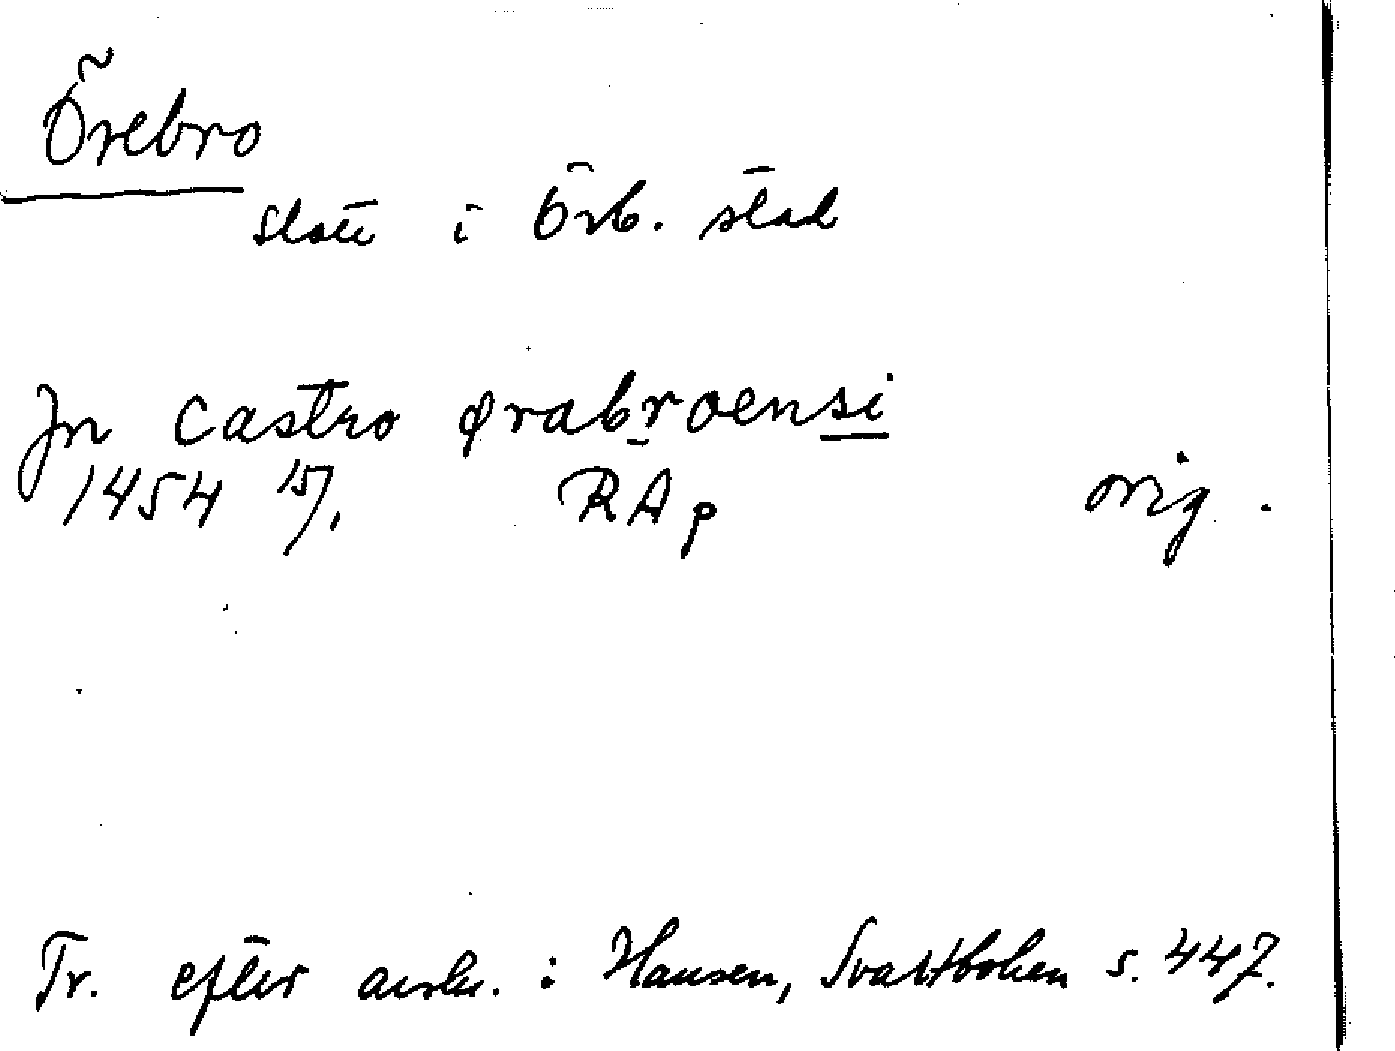 Örebro
slott i Örb. stad
Jn Castro ørabroensi
1454 15/1 RAp orig.
Tr. efter avskr. i Hausen, Svartboken s. 447.